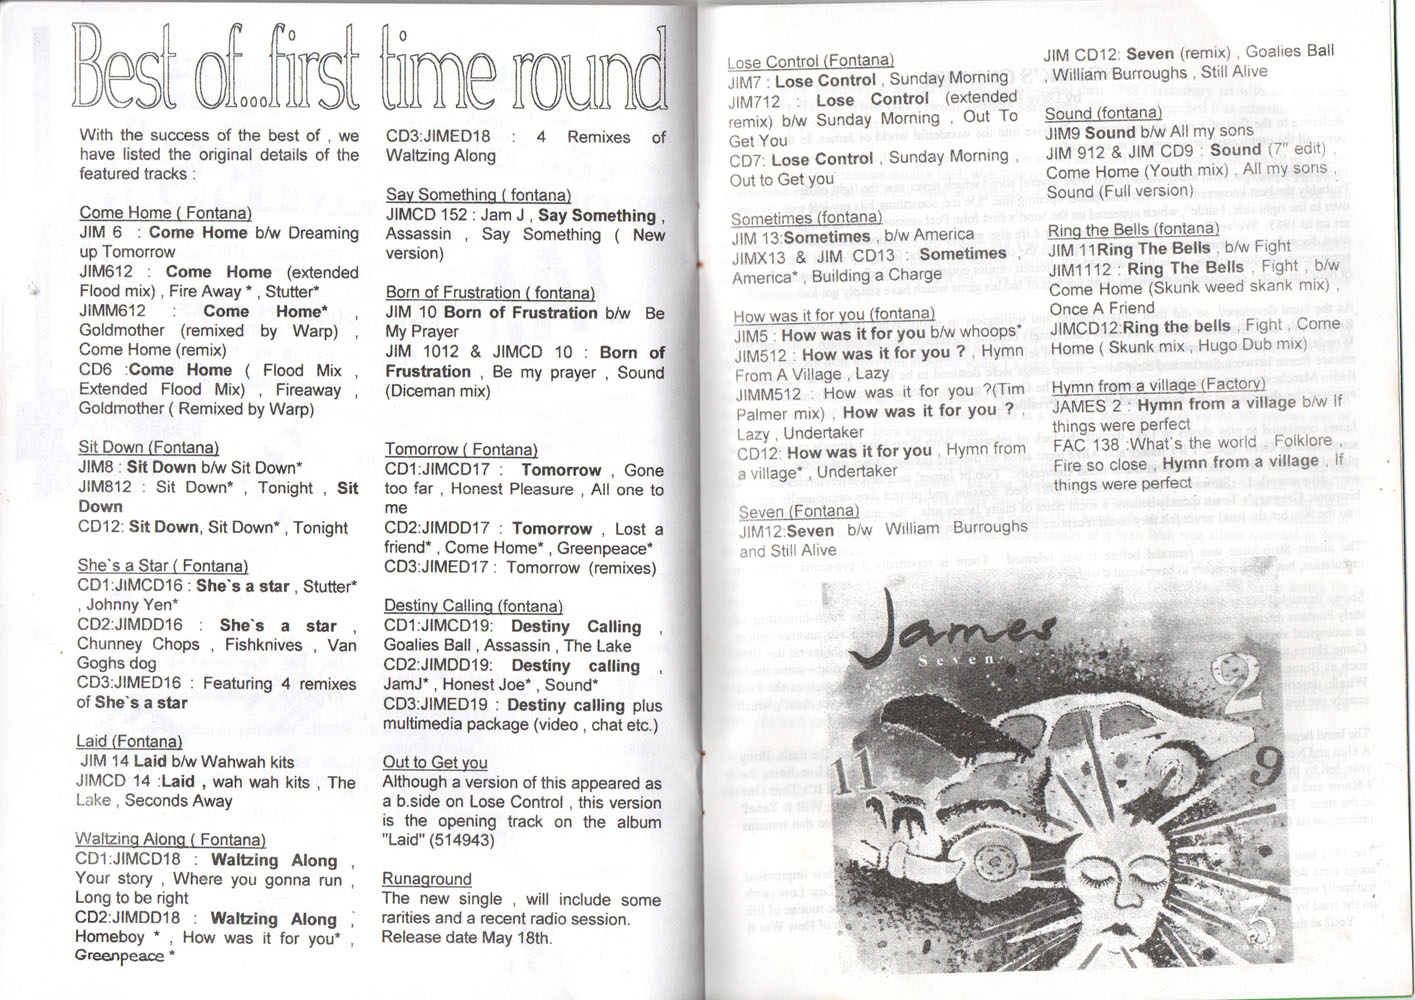 Best of...first time round
With the success of the best of , we
have listed the original details of the
featured tracks :
Come Home ( Fontana)
JIM 6 : Come Home b/w Dreaming
up Tomorrow
JIM612 : Come Home (extended
Flood mix) , Fire Away * , Stutter*
JIMM612 : Come Home* ,
Goldmother (remixed by Warp) ,
Come Home (remix)
CD6 :Come Home ( Flood Mix ,
Extended Flood Mix) , Fireaway ,
Goldmother ( Remixed by Warp)
Sit Down (Fontana)
JIM8 : Sit Down b/w Sit Down*
JIM812 : Sit Down* , Tonight , Sit
Down
CD12: Sit Down, Sit Down* , Tonight
She`s a Star ( Fontana)
CD1:JIMCD16 : She`s a star , Stutter*
, Johnny Yen*
CD2:JIMDD16 : She`s a star ,
Chunney Chops , Fishknives , Van
Goghs dog
CD3:JIMED16 : Featuring 4 remixes
of She`s a star
Laid (Fontana)
JIM 14 Laid b/w Wahwah kits
JIMCD 14 :Laid , wah wah kits , The
Lake , Seconds Away
Waltzing Along ( Fontana)
CD1:JIMCD18 : Waltzing Along ,
Your story , Where you gonna run ,
Long to be right
CD2:JIMDD18 : Waltzing Along ,
Homeboy * , How was it for you* ,
Greenpeace *
CD3:JIMED18 : 4 Remixes of
Waltzing Along
Say Something ( fontana)
JIMCD 152 : Jam J , Say Something ,
Assassin , Say Something ( New
version)
Born of Frustration ( fontana)
JIM 10 Born of Frustration b/w Be
My Prayer
JIM 1012 & JIMCD 10 : Born of
Frustration , Be my prayer , Sound
(Diceman mix)
Tomorrow ( Fontana)
CD1:JIMCD17 : Tomorrow , Gone
too far , Honest Pleasure , All one to
me
CD2:JIMDD17 : Tomorrow , Lost a
friend* , Come Home* , Greenpeace*
CD3:JIMED17 : Tomorrow (remixes)
Destiny Calling (fontana)
CD1:JIMCD19: Destiny Calling ,
Goalies Ball , Assassin , The Lake
CD2:JIMDD19: Destiny calling ,
JamJ* , Honest Joe* , Sound*
CD3:JIMED19 : Destiny calling plus
multimedia package (video , chat etc.)
Out to Get you
Although a version of this appeared as
a b.side on Lose Control , this version
is the opening track on the album
"Laid" (514943)
Runaground
The new single , will include some
rarities and a recent radio session.
Release date May 18th.
Lose Control (Fontana)
JIM7 : Lose Control , Sunday Morning
JIM712 : Lose Control (extended
remix) b/w Sunday Morning , Out To
Get You
CD7: Lose Control , Sunday Morning ,
Out to Get you
Sometimes (fontana)
JIM 13:Sometimes , b/w America
JIMX13 & JIM CD13 : Sometimes ,
America* , Building a Charge
How was it for you (fontana)
JIM5 : How was it for you b/w whoops*
JIM512 : How was it for you ? , Hymn
From A Village , Lazy
JIMM512 : How was it for you ?(Tim
Palmer mix) , How was it for you ? ,
Lazy , Undertaker
CD12: How was it for you , Hymn from
a village* , Undertaker
Seven (Fontana)
JIM12:Seven b/w William Burroughs
and Still Alive
JIM CD12: Seven (remix) , Goalies Ball
, William Burroughs , Still Alive
Sound (fontana)
JIM9 Sound b/w All my sons
JIM 912 & JIM CD9 : Sound (7" edit) ,
Come Home (Youth mix) , All my sons ,
Sound (Full version)
Ring the Bells (fontana)
JIM 11Ring The Bells , b/w Fight
JIM1112 : Ring The Bells , Fight , b/w
Come Home (Skunk weed skank mix) ,
Once A Friend
JIMCD12:Ring the bells , Fight , Come
Home ( Skunk mix , Hugo Dub mix)
Hymn from a village (Factory)
JAMES 2 : Hymn from a village b/w If
things were perfect
FAC 138 :What`s the world , Folklore ,
Fire so close , Hymn from a village , If
things were perfect
James
Seven
2
11
9
3